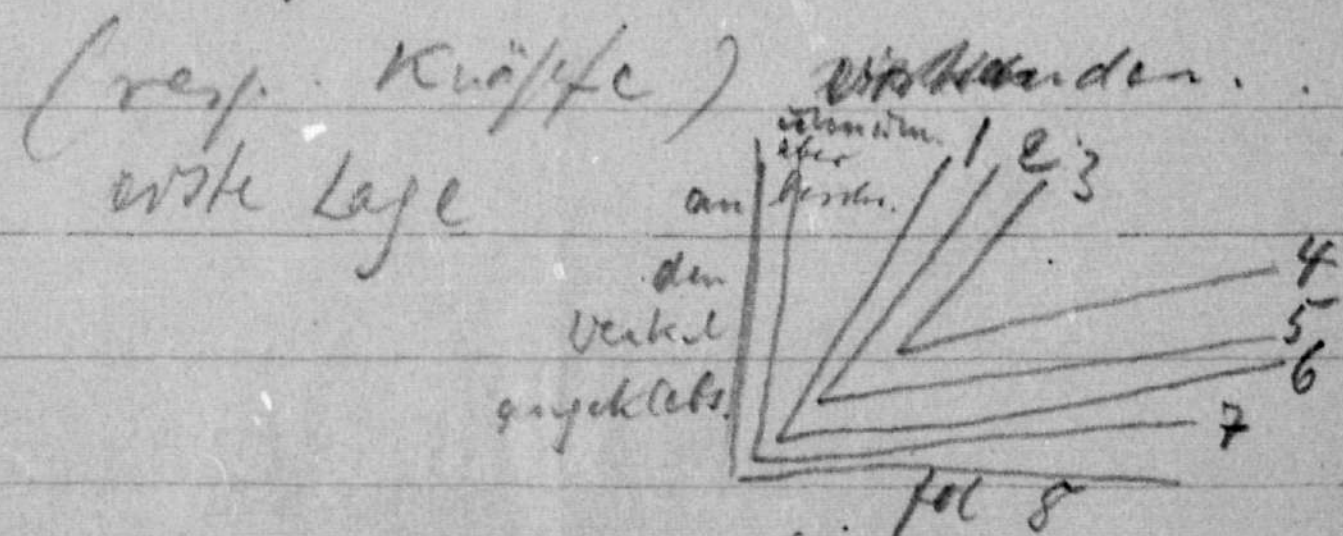 (resp. Knöpfe) vorhanden.
erste Lage
aber
an
den
Deckel
angeklebt.
1 2 3
4
5
6
7
fol 8